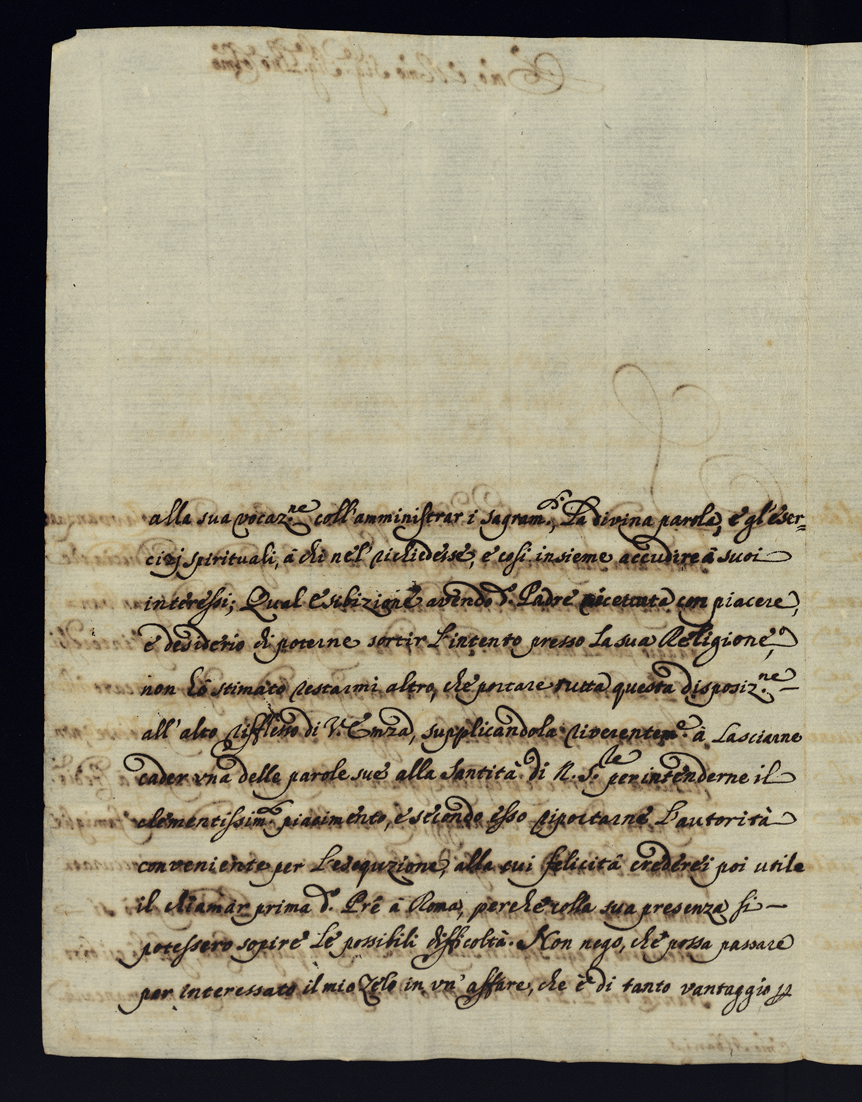 alla sua vocaz.ne coll'amministrar i sagram.ti, La divina parola, e gl'eser=
cizj spirituali, à chi nel' richiedesse, e così insieme accudire à suoi
interessi; Qual' esibizione avendo d.o Padre accettata con piacere,
e desiderio di poterne sortir L'intento presso La sua Religione,
non hò stimato restarmi altro, che portare tutta questa disposiz.ne
all'alto riflesso di V. Emza, supplicandola riverentem.e à Lasciarne
cader vna delle parole sue alla Santità di N. S.re per intenderne il
clementissim.o piacimento, e secondo esso riportarne L'autorità
conveniente per L'esequzione, alla cui felicità crederei poi utile
il chiamar prima d.o Prê à Roma, perche colla sua presenza si
potessero sopire Le possibili difficoltà. Non nego, che possa passare
per interessato il mio Zelo in vn' affare, che è di tanto vantaggio